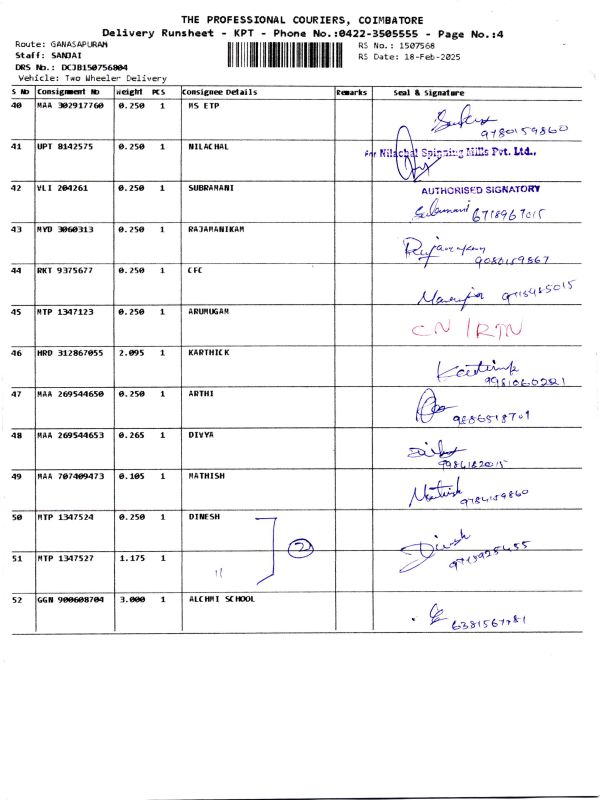 THE PROFESSIONAL COURIERS, COIMBATORE
Delivery Runsheet - KPT - Phone No.:0422-3505555 - Page No.:4
Route: GANASAPURAM RS No.: 1507568
Staff: SANJAI RS Date: 18-Feb-2025
DRS No.: DCJB150756804
Vehicle: Two Wheeler Delivery
S No Consignment No Weight PCS Consignee Details Remarks Seal & Signature
40 MAA 302917760 0.250 1 MS ETP
9780159860
41 UPT 8142575 0.250 1 NILACHAL
For Nilachal Spinning Mills Pvt. Ltd.,
42 VLI 204261 0.250 1 SUBRAMANI AUTHORISED SIGNATORY
Subramani 6718967015
43 MYD 3060313 0.250 1 RAJAMANIKAM
9080159867
44 RKT 9375677 0.250 1 CFC
9715485015
45 MTP 1347123 0.250 1 ARUMUGAM
CN / RTN
46 HRD 312867055 2.095 1 KARTHICK
Karthick
47 MAA 269544650 0.250 1 ARTHI
9886518701
48 MAA 269544653 0.265 1 DIVYA
9986182015
49 MAA 707409473 0.105 1 MATHISH
Mathish 9784159860
50 MTP 1347524 0.250 1 DINESH
2
Dinesh 9715925455
51 MTP 1347527 1.175 1
"
52 GGN 900608704 3.000 1 ALCHMI SCHOOL
6381567781